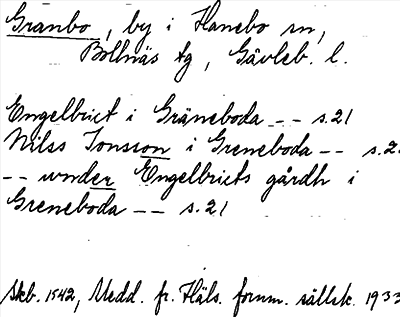 Granbo, by i Hanebo sn,
Bollnäs tg, Gävleb. l.
Engelbrict i Gräneboda -- s. 21
Nilss Jonsson i Greneboda -- s. 2
-- wnder Engelbricts gårdh i
Greneboda -- s. 21
Skb. 1542, Medd. fr. Häls. fornm. sällsk. 1933